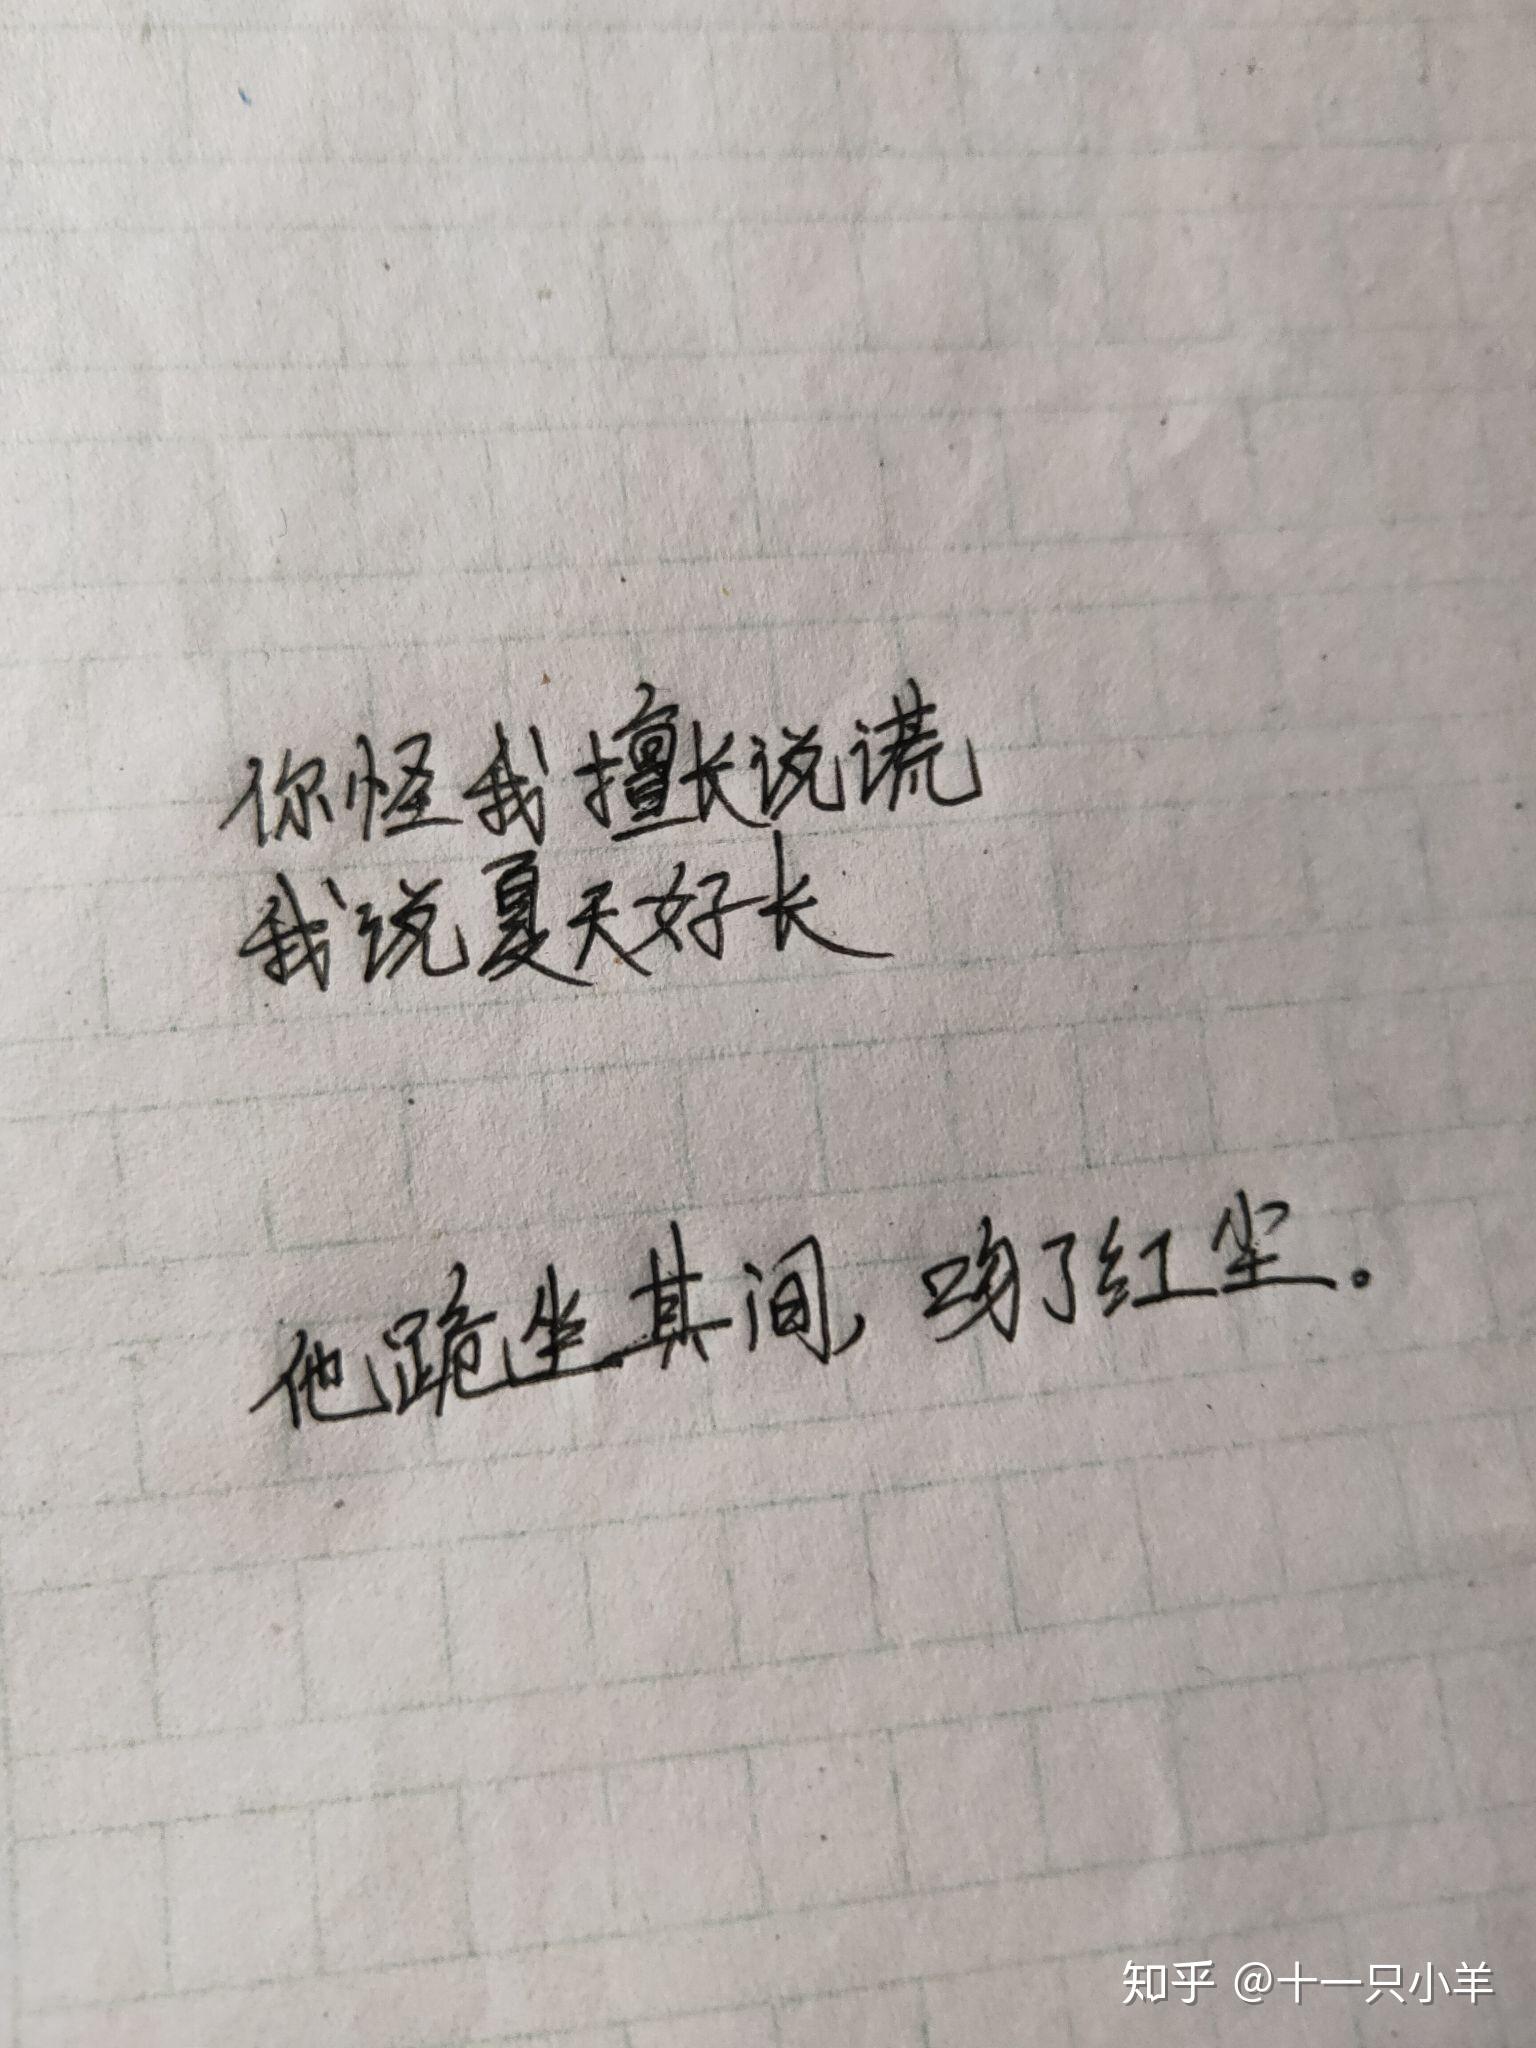 你怪我擅长说谎
我说夏天好长
他跪坐其间，吻了红尘。
知乎 @十一只小羊